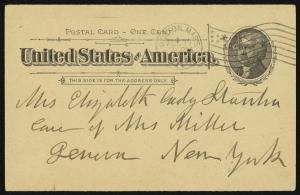 POSTAL CARD - ONE CENT
United States of America.
THIS SIDE IS FOR THE ADDRESS ONLY.
Mrs Elizabeth Cady Stanton
Care of Mrs Miller
Geneva New York